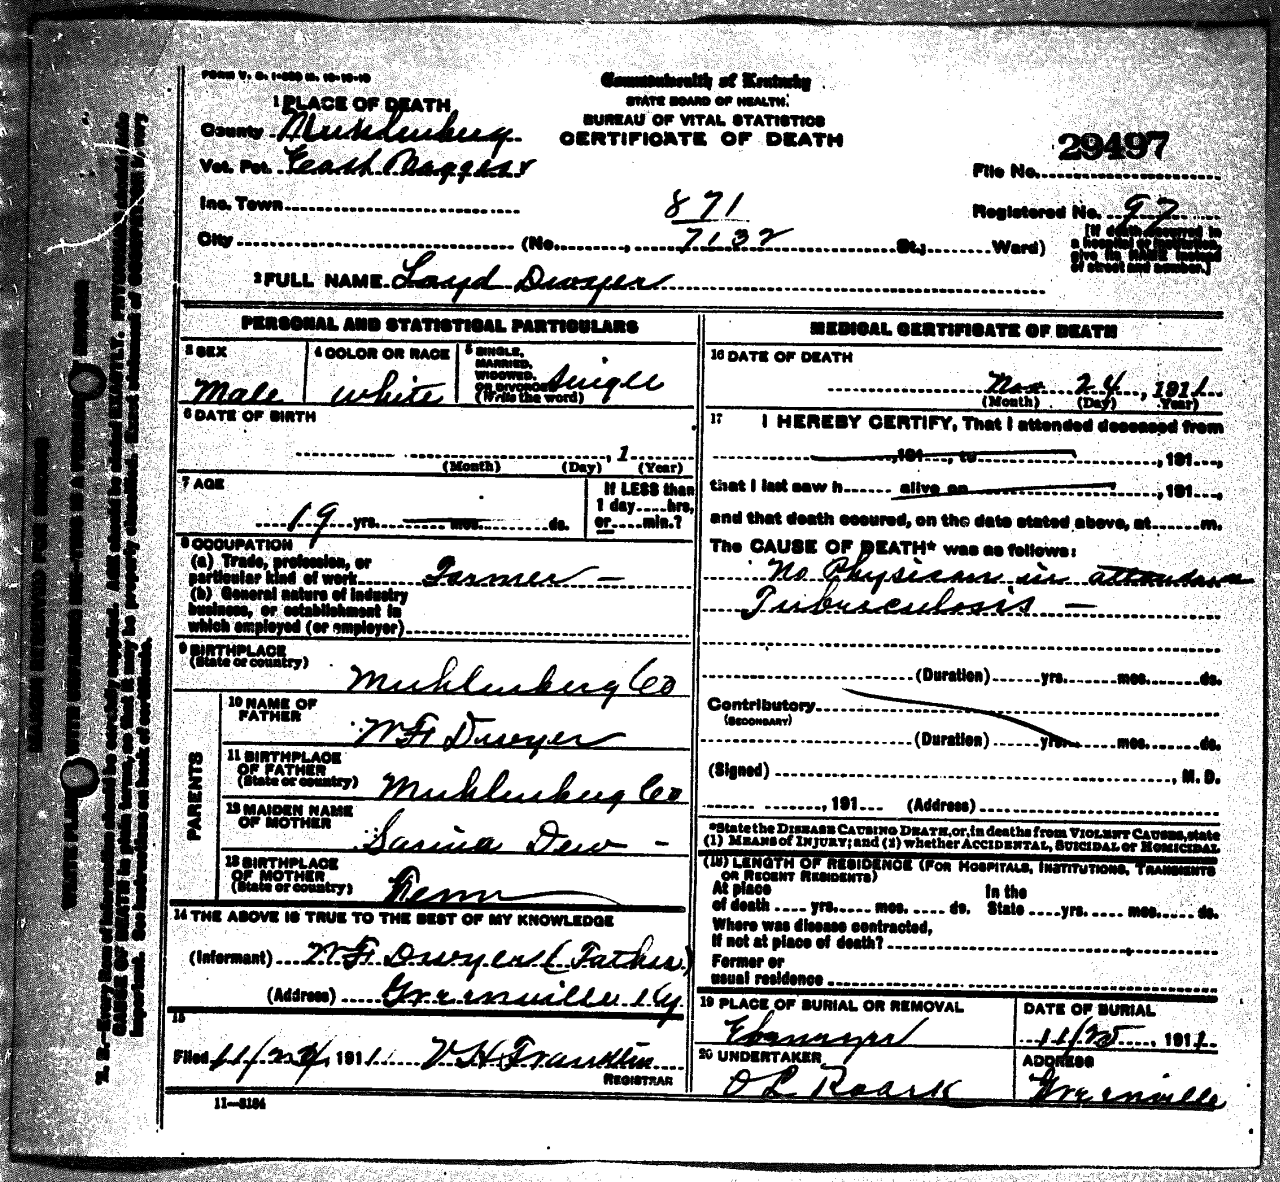 FORM V. S. 1-
Commonwealth of Kentucky
STATE BOARD OF HEALTH.
BUREAU OF VITAL STATISTICS
CERTIFICATE OF DEATH
1 PLACE OF DEATH
County Muhlenberg
Vot. Pct. East
Inc. Town
City (No. , 871 7132 St.; Ward)
29497
File No.
Registered No. 97
[If death occurred in
a hospital or institution,
give its NAME instead
of street and number.]
2 FULL NAME Loyd Dwyer
PERSONAL AND STATISTICAL PARTICULARS
3 SEX
Male
4 COLOR OR RACE
white
5 SINGLE,
MARRIED,
WIDOWED,
OR DIVORCED
(Write the word)
Single
6 DATE OF BIRTH
, 1
(Month) (Day) (Year)
7 AGE
19 yrs. mos. ds.
If LESS than
1 day hrs,
or min.?
8 OCCUPATION
(a) Trade, profession, or
particular kind of work Farmer -
(b) General nature of industry
business, or establishment in
which employed (or employer)
9 BIRTHPLACE
(State or country)
Muhlenberg Co
PARENTS
10 NAME OF
FATHER
W F Dwyer
11 BIRTHPLACE
OF FATHER
(State or country)
Muhlenberg Co
12 MAIDEN NAME
OF MOTHER
Dew -
13 BIRTHPLACE
OF MOTHER
(State or country)
Tenn
14 THE ABOVE IS TRUE TO THE BEST OF MY KNOWLEDGE
(Informant) W F Dwyer (Father)
(Address) Greenville Ky
15
Filed 11/24, 1911 V H Franklin
REGISTRAR
11-3184
MEDICAL CERTIFICATE OF DEATH
16 DATE OF DEATH
Nov 24, 1911
(Month) (Day) Year)
17 I HEREBY CERTIFY, That I attended deceased from
, 191 , to , 191 ,
that I last saw h alive on , 191 ,
and that death occured, on the date stated above, at m.
The CAUSE OF DEATH* was as follows:
No Physican in attendance
Tuberculosis -
(Duration) yrs. mos. ds.
Contributory
(SECONDARY)
(Duration) yrs. mos. ds.
(Signed) , M. D.
, 191 (Address)
*State the DISEASE CAUSING DEATH, or, in deaths from VIOLENT CAUSES, state
(1) MEANS OF INJURY; and (2) whether ACCIDENTAL, SUICIDAL or HOMICIDAL
(18) LENGTH OF RESIDENCE (FOR HOSPITALS, INSTITUTIONS, TRANSIENTS
OR RECENT RESIDENTS)
At place
of death yrs. mos. ds.
In the
State yrs. mos. ds.
Where was disease contracted,
if not at place of death?
Former or
usual residence
19 PLACE OF BURIAL OR REMOVAL
Ebenezer
DATE OF BURIAL
11/25, 1911
20 UNDERTAKER
O L Roark
ADDRESS
Greenville
MARGIN RESERVED FOR BINDING
WRITE PLAINLY, WITH UNFADING INK—THIS IS A PERMANENT RECORD
N. B.—Every item of information should be carefully supplied. AGE should be stated EXACTLY. PHYSICIANS should state
CAUSE OF DEATH in plain terms, so that it may be properly classified. Exact statement of OCCUPATION is very
important. See instructions on back of certificate.